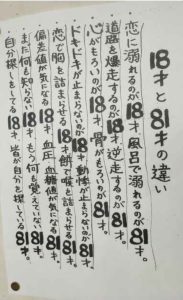 18才と81才の違い
恋に溺れるのが18才 風呂で溺れるのが81才。
道路を爆走するのが18才 逆走するのが81才。
心がもろいのが18才 骨がもろいのが81才。
ドキドキが止まらないのが18才 動悸が止まらないのが81才。
恋で胸を詰まらせる18才 餅で喉を詰まらせる81才。
偏差値が気になる18才 血圧、血糖値が気になる81才。
まだ何も知らない18才 もう何も覚えていない81才。
自分探しをしてる18才 皆が自分を探している81才。